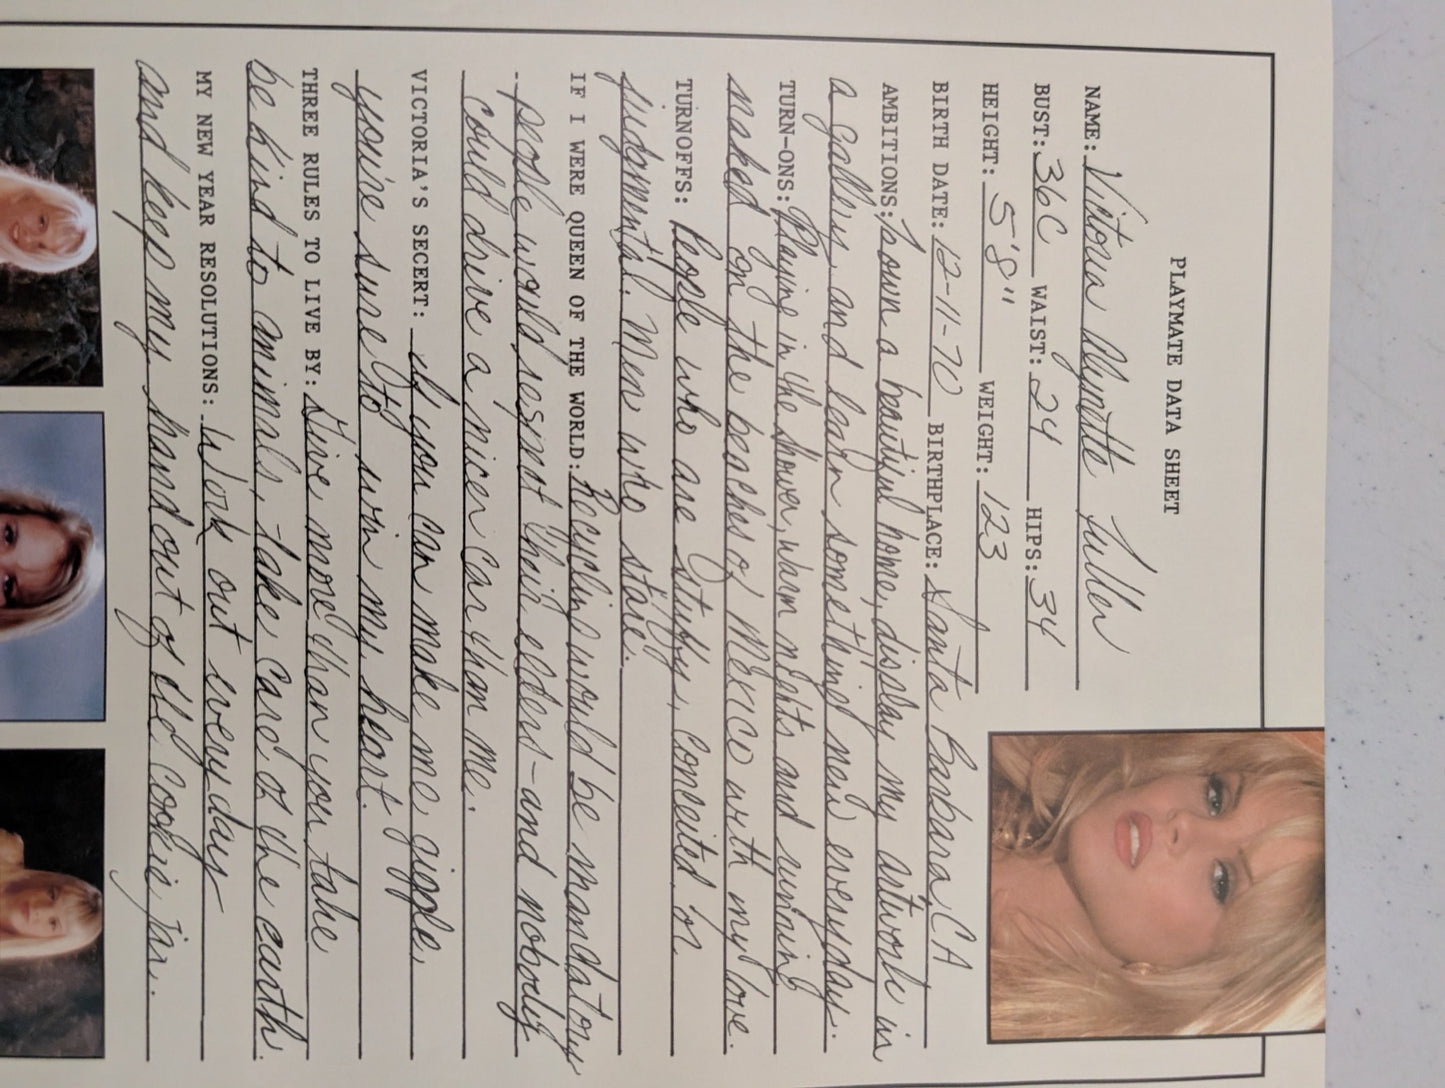 PLAYMATE DATA SHEET
NAME: Victoria Alynette Fuller
BUST: 36C WAIST: 24 HIPS: 34
HEIGHT: 5'8" WEIGHT: 123
BIRTH DATE: 12-11-70 BIRTHPLACE: Santa Barbara, CA
AMBITIONS: To own a beautiful home, display my artwork in
a gallery, and learn something new everyday.
TURN-ONS: Playing in the shower, warm nights and running
naked on the beaches of Mexico with my love.
TURNOFFS: People who are stuffy, conceited or
judgmental. Men who stare.
IF I WERE QUEEN OF THE WORLD: Recycling would be mandatory
- people would respect their elders - and nobody
could drive a nicer car than me.
VICTORIA'S SECERT: If you can make me giggle,
you're sure to win my heart.
THREE RULES TO LIVE BY: Give more than you take
be kind to animals, take care of the earth.
MY NEW YEAR RESOLUTIONS: Work out everyday
and keep my hand out of the cookie jar.